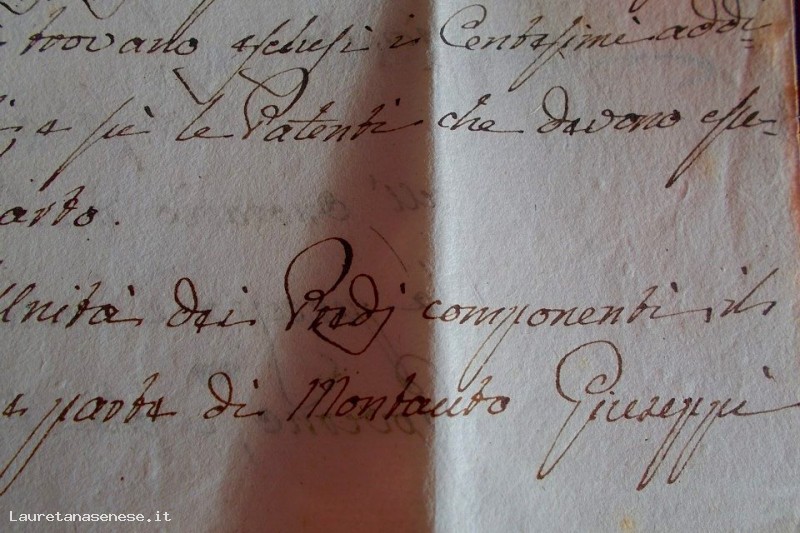 trovano esclusi i Centesimi addi-
e piè le Patenti che devono esse-
arto.
Unità dei Podj componenti il
e parte di Montauto Giuseppe
Lauretanasenese.it